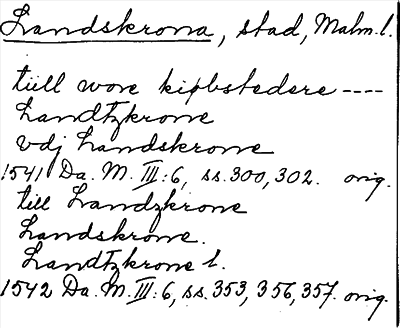 Landskrona, stad, Malm. l.
tiill wore kiøbstedere ----
Landtzkrone
vdj Landskrone
1541 Da. M. III: 6, ss. 300, 302. orig.
till Landzkrone
Landskrone.
Landtzkrone l.
1542 Da. M. III: 6, ss. 353, 356, 357. orig.